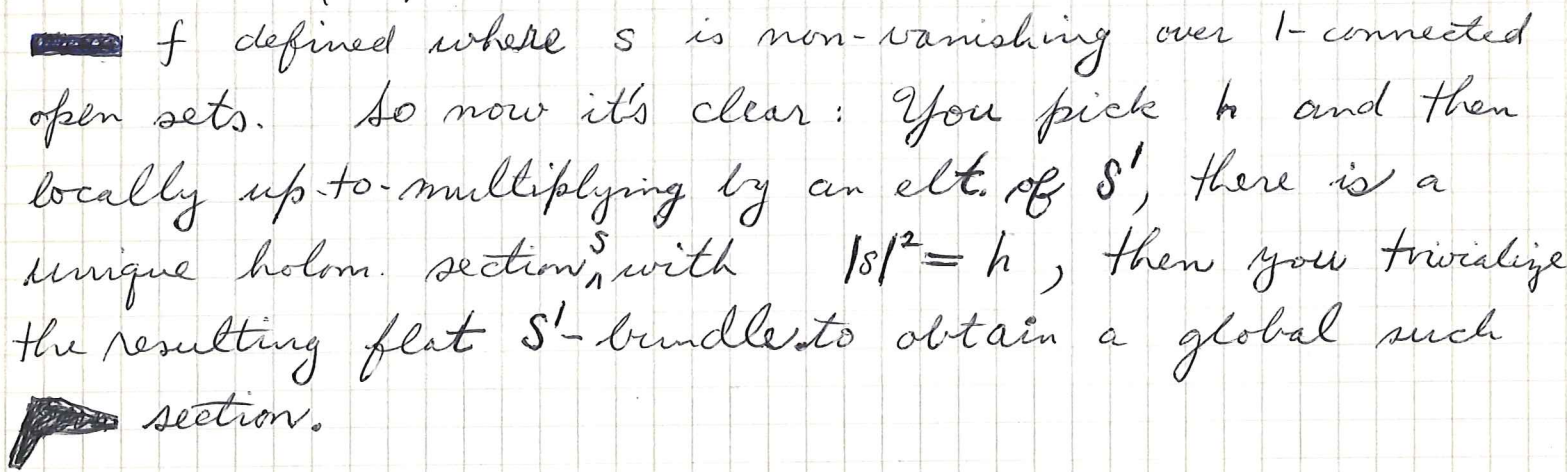 f defined where s is non-vanishing over 1-connected
open sets. So now it's clear: You pick h and then
locally up-to-multiplying by an elt. of S¹, there is a
unique holom. section s with |s|² = h, then you trivialize
the resulting flat S¹-bundle to obtain a global such
section.